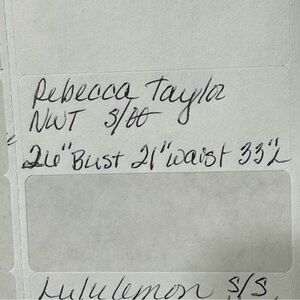 Rebecca Taylor
NWT S/
26" Bust 21" waist 33"L
Lululemon S/S